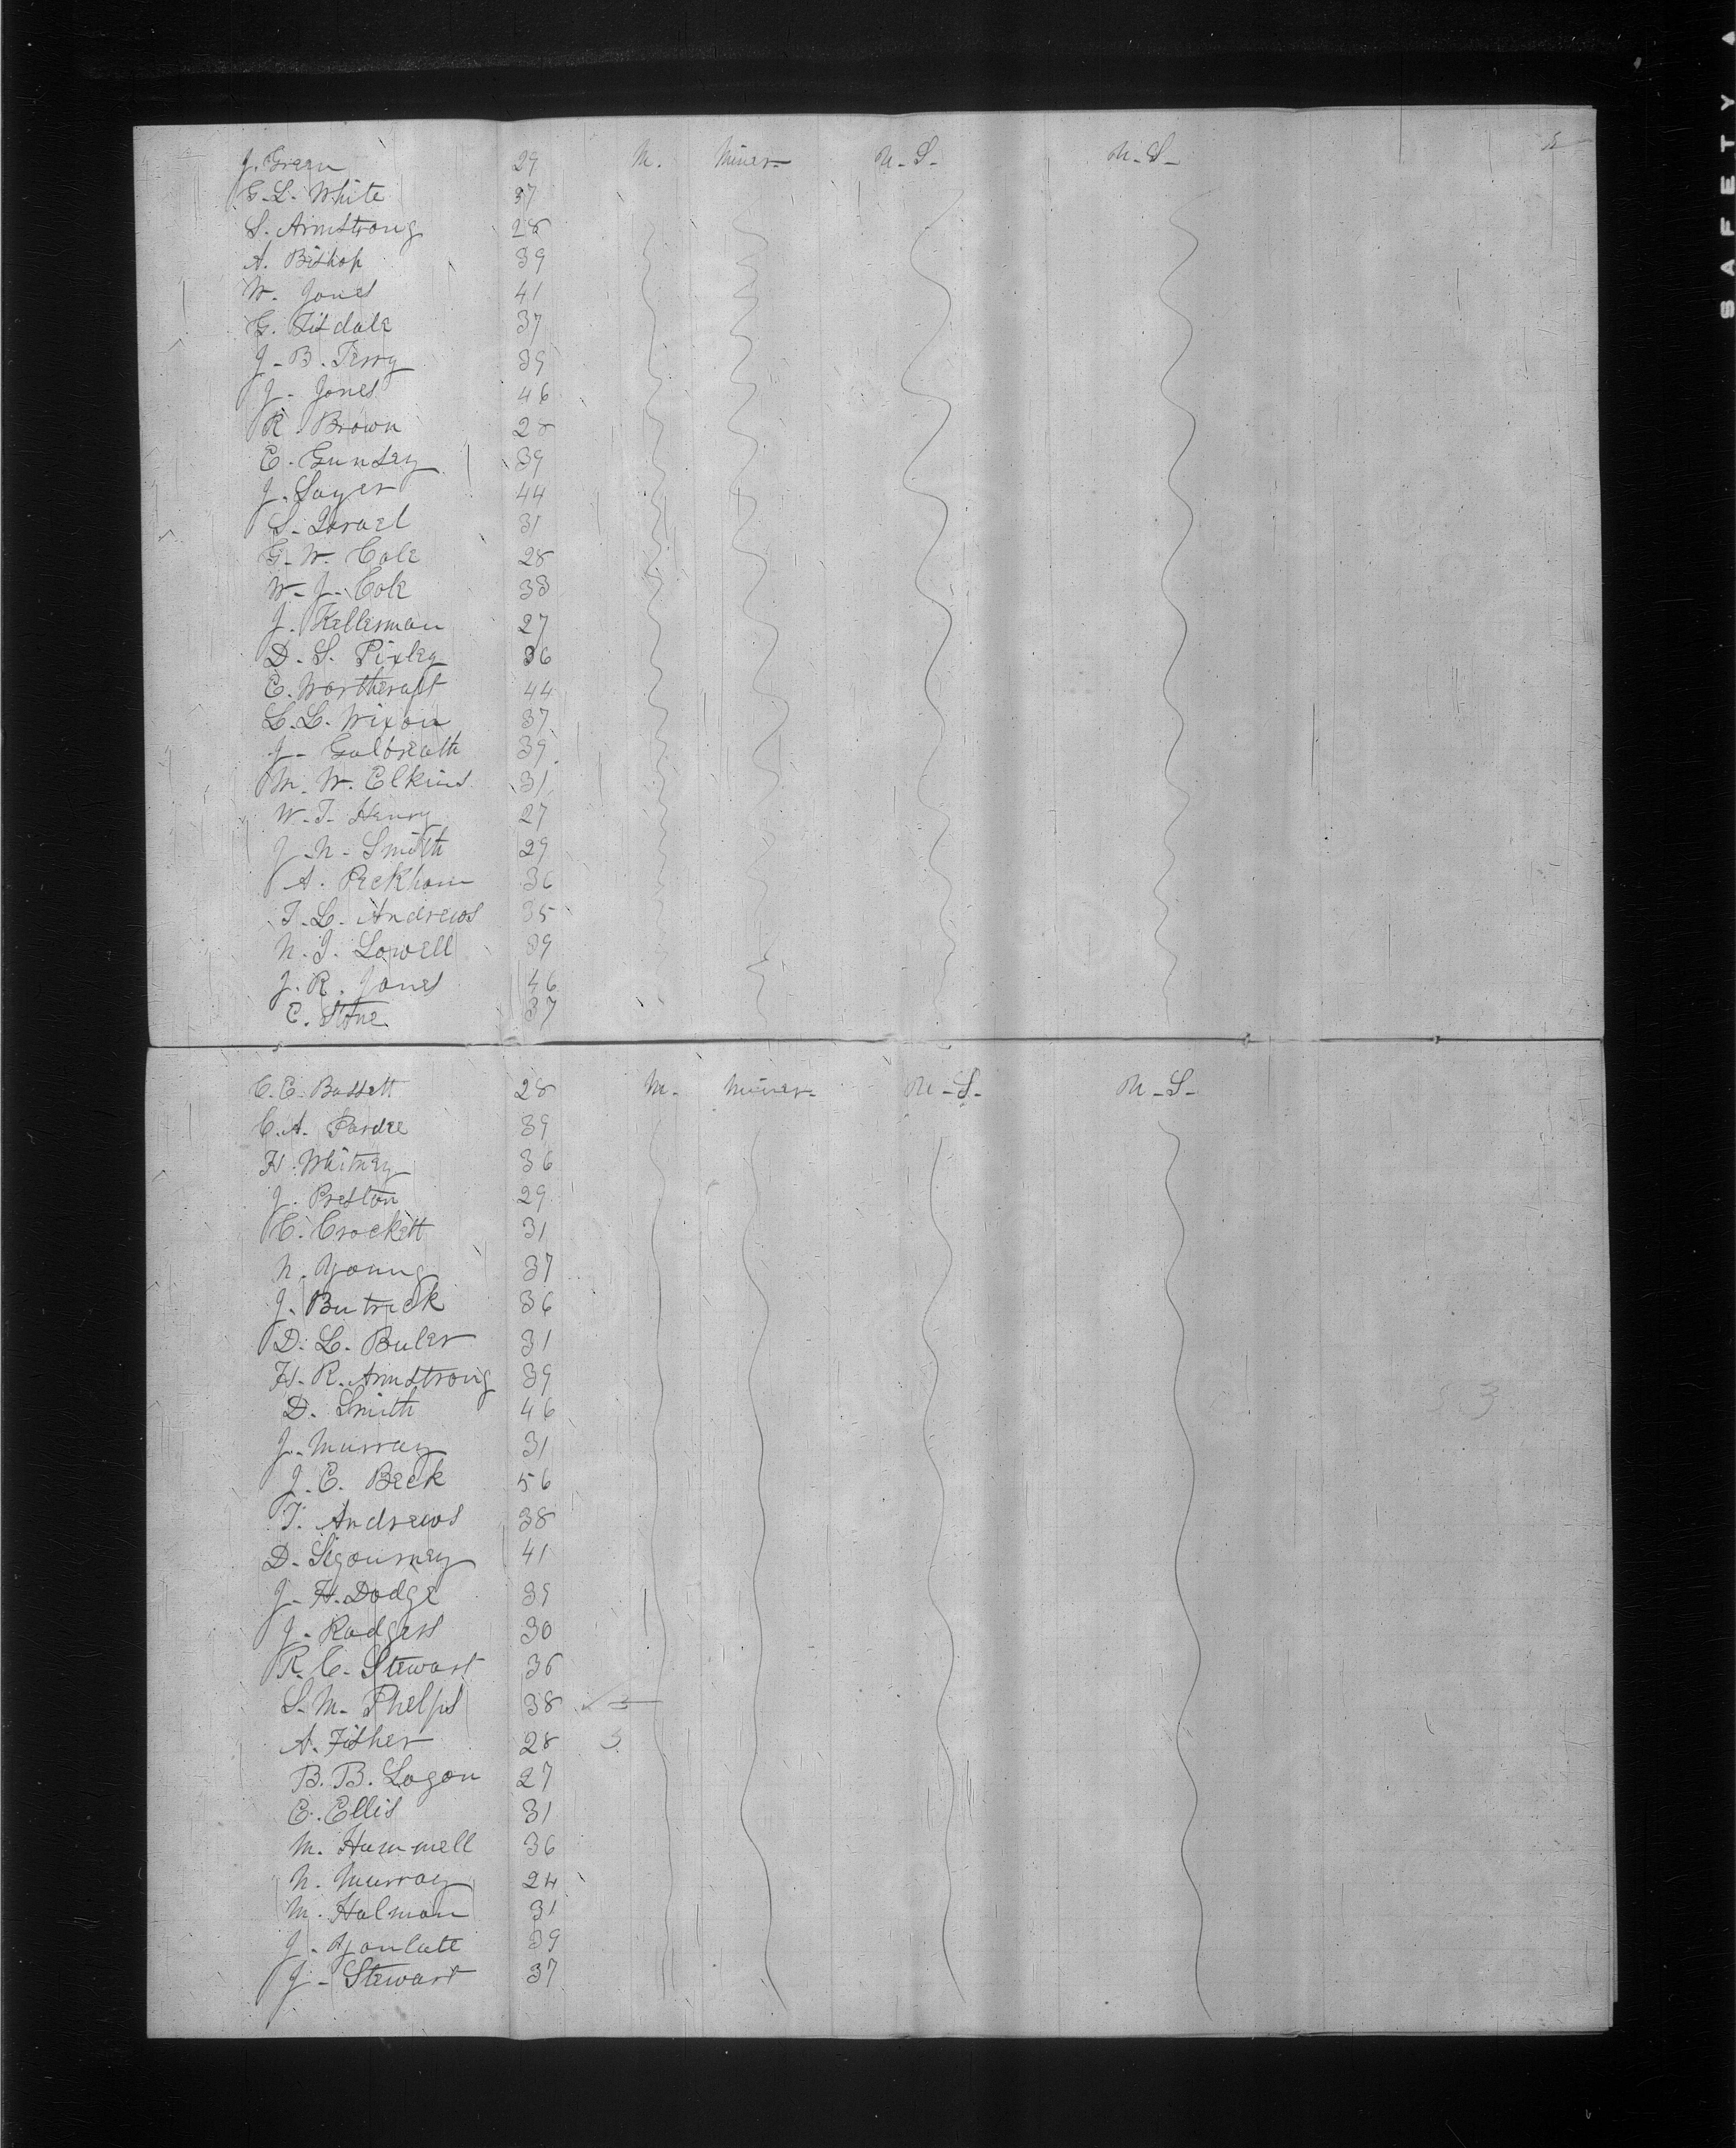 J. Green 29 M. Miner U.S. U.S.
G. L. White 37
S. Armstrong 28
A. Bishop 39
W. Jones 41
G. Tisdale 37
J. B. Terry 39
J. Jones 46
R. Brown 28
E. Gunsey 39
J. Sayer 44
S. Israel 31
G. W. Cole 28
W. J. Cole 38
J. Kellerman 27
D. S. Pixley 36
E. 44
L. L. Wixon 37
J. Galbreath 39
M. W. Elkins 31
W. T. Henry 27
J. N. Smith 29
A. Peckham 36
T. L. Andrews 35
N. J. Lowell 39
J. R. Jones 46
E. Stone 37
C. E. Bassett 28 M. Miner U.S. U.S.
C. A. Pardee 39
H. Whitney 36
J. Preston 29
C. Crockett 31
N. Young 37
J. Butrick 36
D. L. Buler 31
H. R. Armstrong 39
D. Smith 46
J. Murray 31
J. E. Beck 56
T. Andrews 38
D. Sigourney 41
J. H. Dodge 39
J. Rodgers 30
R. C. Stewart 36
S. M. Phelps 38
A. Fisher 28
B. B. Logan 27
E. Ellis 31
M. Hummell 36
N. Murray 24
M. Halman 31
J. 39
J. Stewart 37
SAFETY